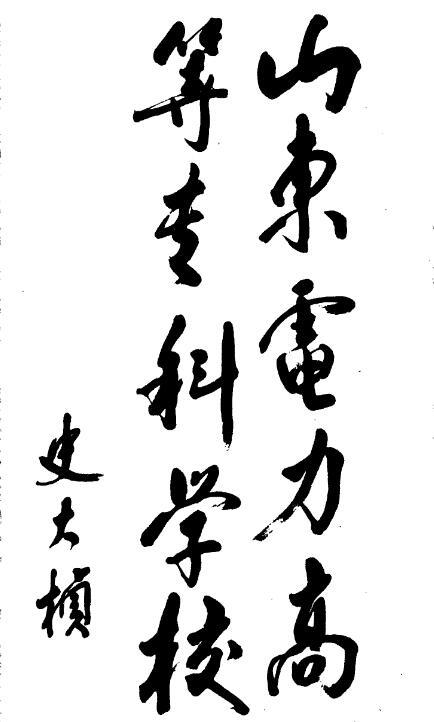 山東電力高
等专科学校
史大桢